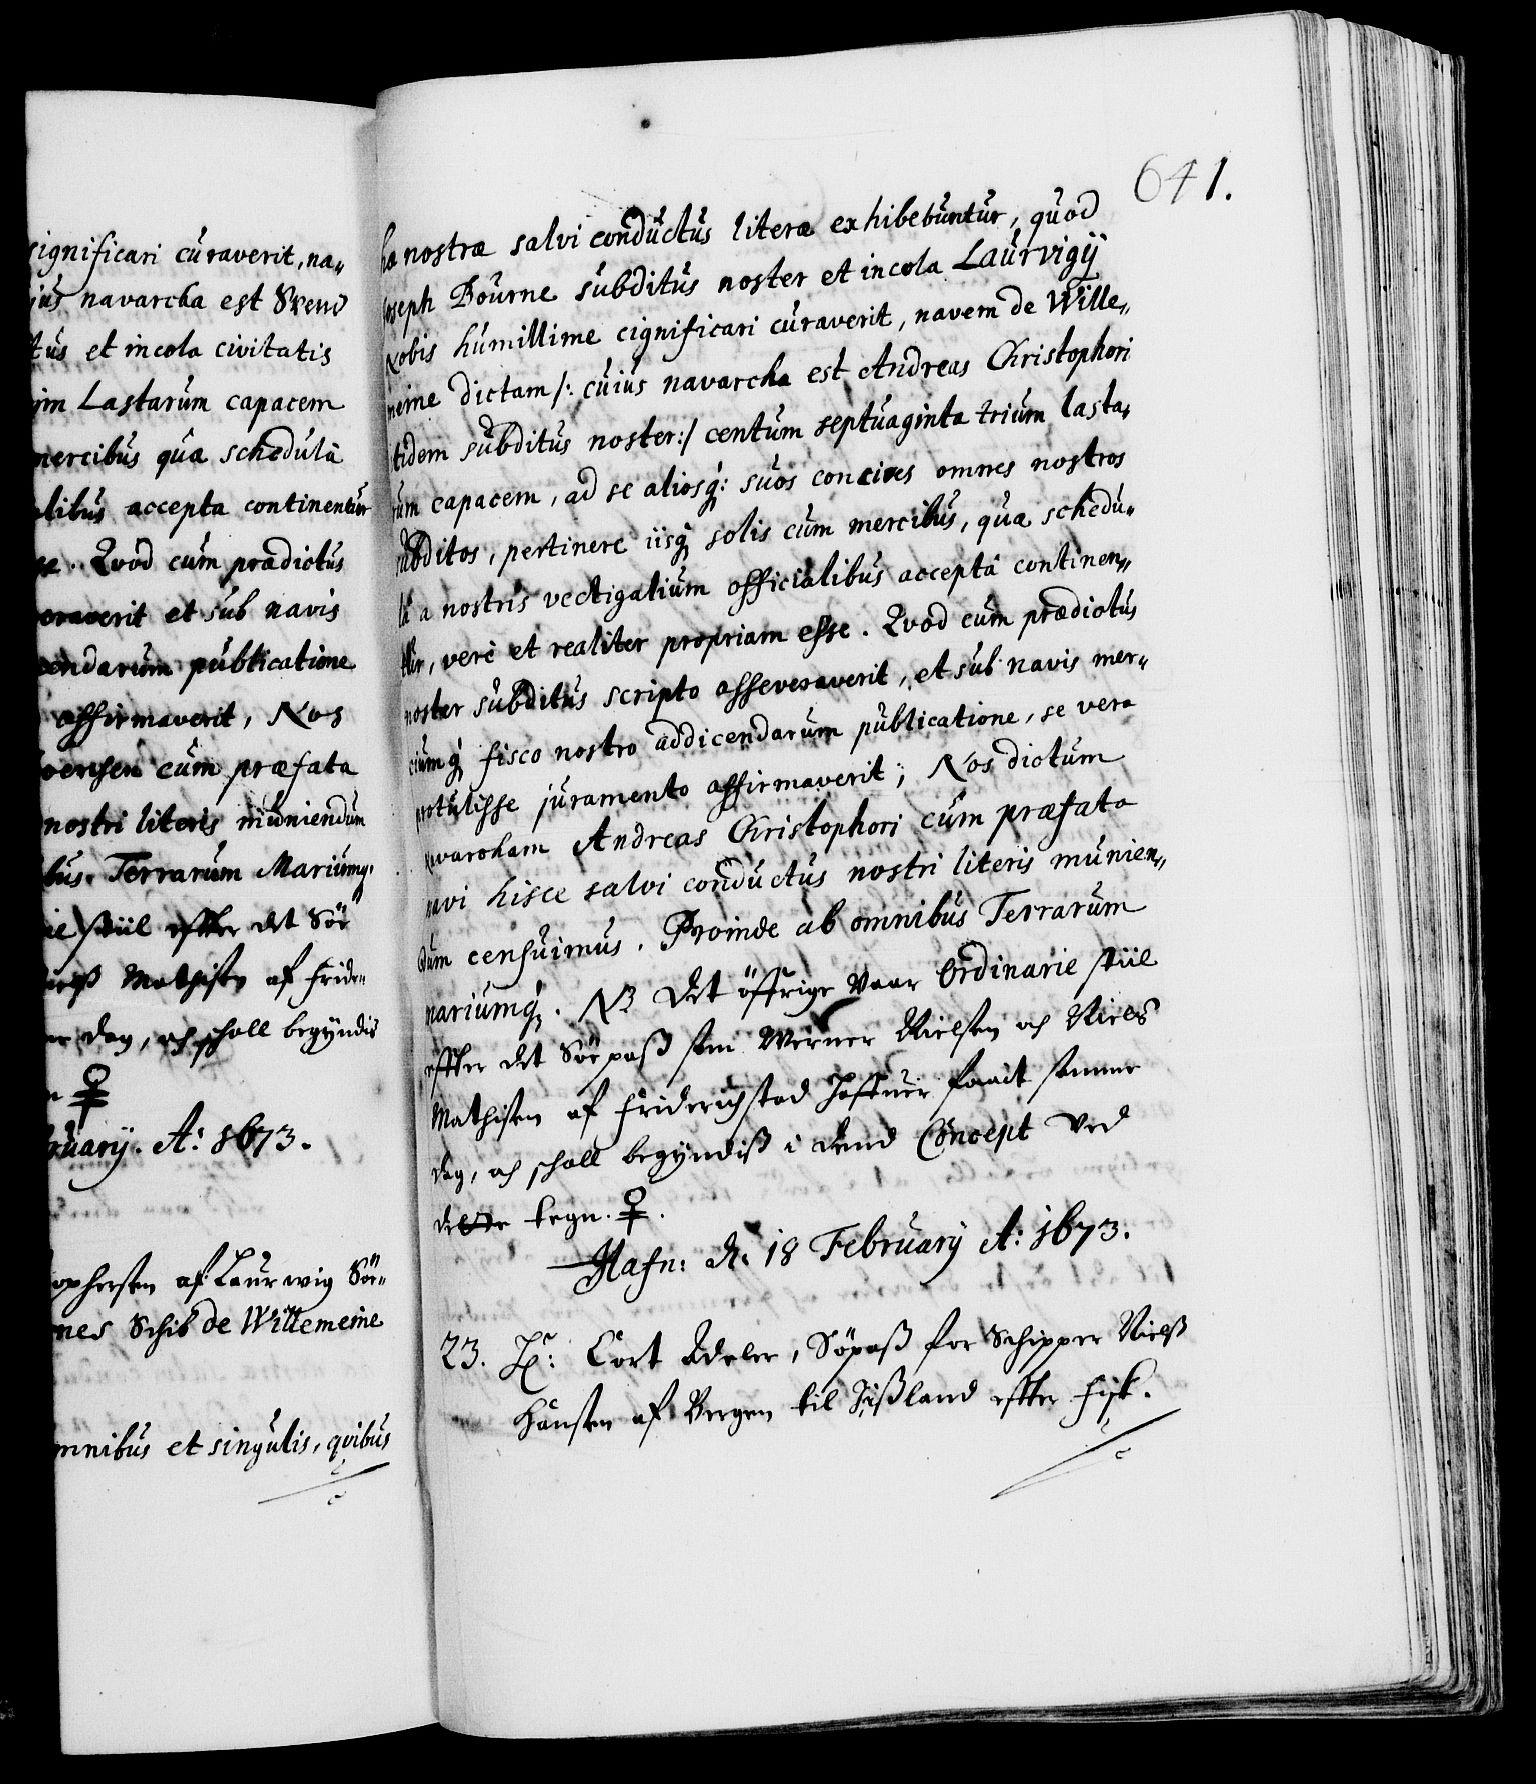 significari curaverit, na„
jus navarcha est Svend
tus et incola civitatis
Lastarum capacem
mercibus qua schedulâ
alibus accepta continentur
Qvod cum prædictus
veraverit et sub navis
cendarum publicatione
affirmaverit, Nos
cum præfata
nostri literis muniendum
bus. Terrarum Mariumq.
stiil effter det Söe
Mathisen af Fride„
dag, och schall begyndis
♀
bruarij. A: 1673.
ophersen af Laurwig Sö„
nes Schib de Willemeine
omnibus et singulis, qvibus
641.
hæ nostræ salvi conductus literæ exhibebuntur, quod
Joseph Bourne subditus noster et incola Laurvigij
Nobis humillime cignificari curaverit, navem de Wille„
meine dictam /: cuius navarcha est Andreas Christophori
itidem subditus noster:/ centum septuaginta trium lasta„
rum capacem, ad se aliosq: suos concives omnes nostros
subditos, pertinere iisq solis cum mercibus, qua schedu„
lâ a nostris vectigalium officialibus acceptâ continen„
tur, verè et realiter propriam esse. Qvod cum prædictus
noster subditus scripto asseveraverit, et sub navis mer„
ciumq fisco nostro addicendarum publicatione, se vera
protulisse juramento affirmaverit; Nos dictum
navarcham Andreas Christophori cum præfata
navi hisce salvi conductus nostri literis munien„
dum censuimus. Proinde ab omnibus Terrarum
mariumq. NB det öffrige Vaar Ordinarie stiil
effter det Söe pass som Werner Nielsen och Niels
Mathisen af Friderichstad haffuer faait samme
dag, och schall begyndiss i dend Concept ved
dette tegn. ♀.
Hafn: d. 18 February A: 1673.
23. Hr: Cort Adeler, Söpass for Schipper Nielss
Hansen af Bergen til Jissland effter fisk.